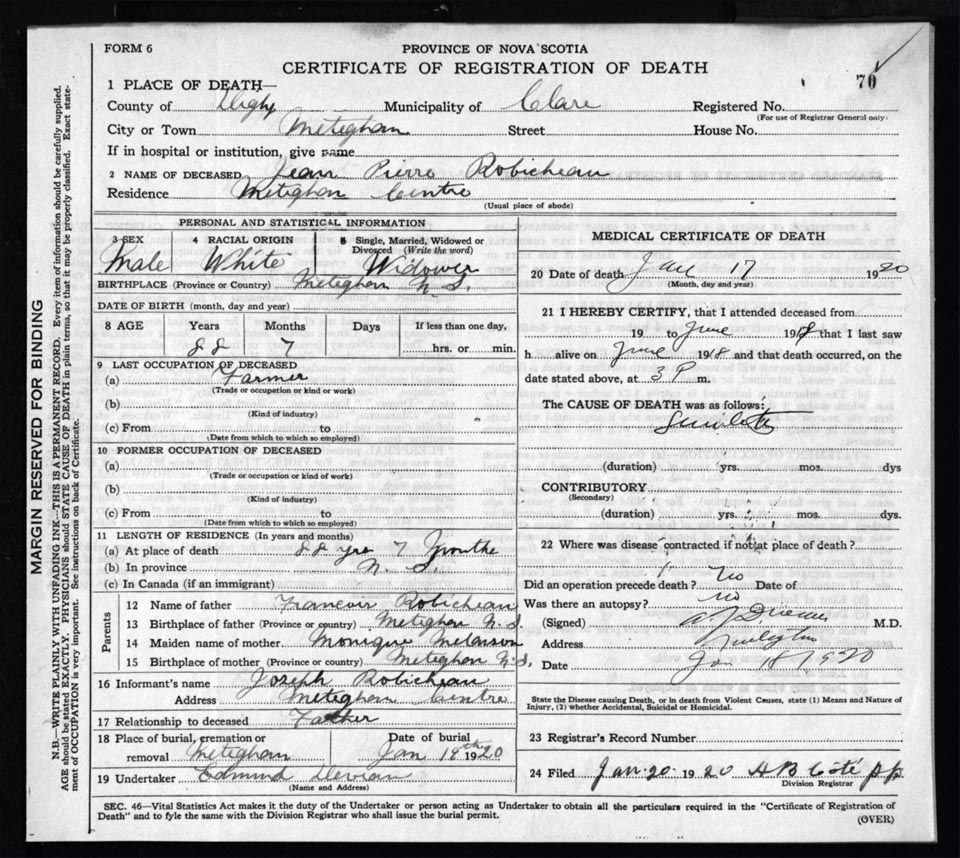 FORM 6
PROVINCE OF NOVA SCOTIA
CERTIFICATE OF REGISTRATION OF DEATH
70
1 PLACE OF DEATH—
County of Digby Municipality of Clare Registered No.
(For use of Registrar General only)
City or Town Meteghan Street House No.
If in hospital or institution, give name
2 NAME OF DECEASED Jean Pierre Robicheau
Residence Meteghan Centre
(Usual place of abode)
PERSONAL AND STATISTICAL INFORMATION
3 SEX 4 RACIAL ORIGIN 5 Single, Married, Widowed or Divorced (Write the word)
Male White Widower
BIRTHPLACE (Province or Country) Meteghan N.S.
DATE OF BIRTH (month, day and year)
8 AGE Years Months Days If less than one day,
88 7 hrs. or min.
9 LAST OCCUPATION OF DECEASED
(a) Farmer
(Trade or occupation or kind or work)
(b)
(Kind of industry)
(c) From to
(Date from which to which so employed)
10 FORMER OCCUPATION OF DECEASED
(a)
(Trade or occupation or kind of work)
(b)
(Kind of industry)
(c) From to
(Date from which to which so employed)
11 LENGTH OF RESIDENCE (In years and months)
(a) At place of death 88 yrs 7 Months
(b) In province N.S.
(c) In Canada (if an immigrant)
Parents
12 Name of father Francois Robicheau
13 Birthplace of father (Province or country) Meteghan N.S.
14 Maiden name of mother Monique Melanson
15 Birthplace of mother (Province or country) Meteghan N.S.
16 Informant's name Joseph Robicheau
Address Meteghan Centre
17 Relationship to deceased Father
18 Place of burial, cremation or removal Meteghan Date of burial Jan 19th 1920
19 Undertaker Edmund
(Name and Address)
MEDICAL CERTIFICATE OF DEATH
20 Date of death Jan 17 1920
(Month, day and year)
21 I HEREBY CERTIFY, that I attended deceased from
19 to June 1918 that I last saw
h alive on June 1918 and that death occurred, on the
date stated above, at 3 P m.
The CAUSE OF DEATH was as follows:
(duration) yrs. mos. dys
CONTRIBUTORY
(Secondary)
(duration) yrs. mos. dys.
22 Where was disease contracted if not at place of death?
Did an operation precede death? No Date of
Was there an autopsy? no
(Signed) M.D.
Address
Date Jan 18 1920
State the Disease causing Death, or in death from Violent Causes, state (1) Means and Nature of
Injury, (2) whether Accidental, Suicidal or Homicidal.
23 Registrar's Record Number
24 Filed Jan. 20 1920
Division Registrar
SEC. 46—Vital Statistics Act makes it the duty of the Undertaker or person acting as Undertaker to obtain all the particulars required in the "Certificate of Registration of
Death" and to fyle the same with the Division Registrar who shall issue the burial permit.
(OVER)
MARGIN RESERVED FOR BINDING
N.B.—WRITE PLAINLY WITH UNFADING INK—THIS IS A PERMANENT RECORD. Every item of information should be carefully supplied.
AGE should be stated EXACTLY. PHYSICIANS should STATE CAUSE OF DEATH in plain terms, so that it may be properly classified. Exact state-
ment of OCCUPATION is very important. See instructions on back of Certificate.